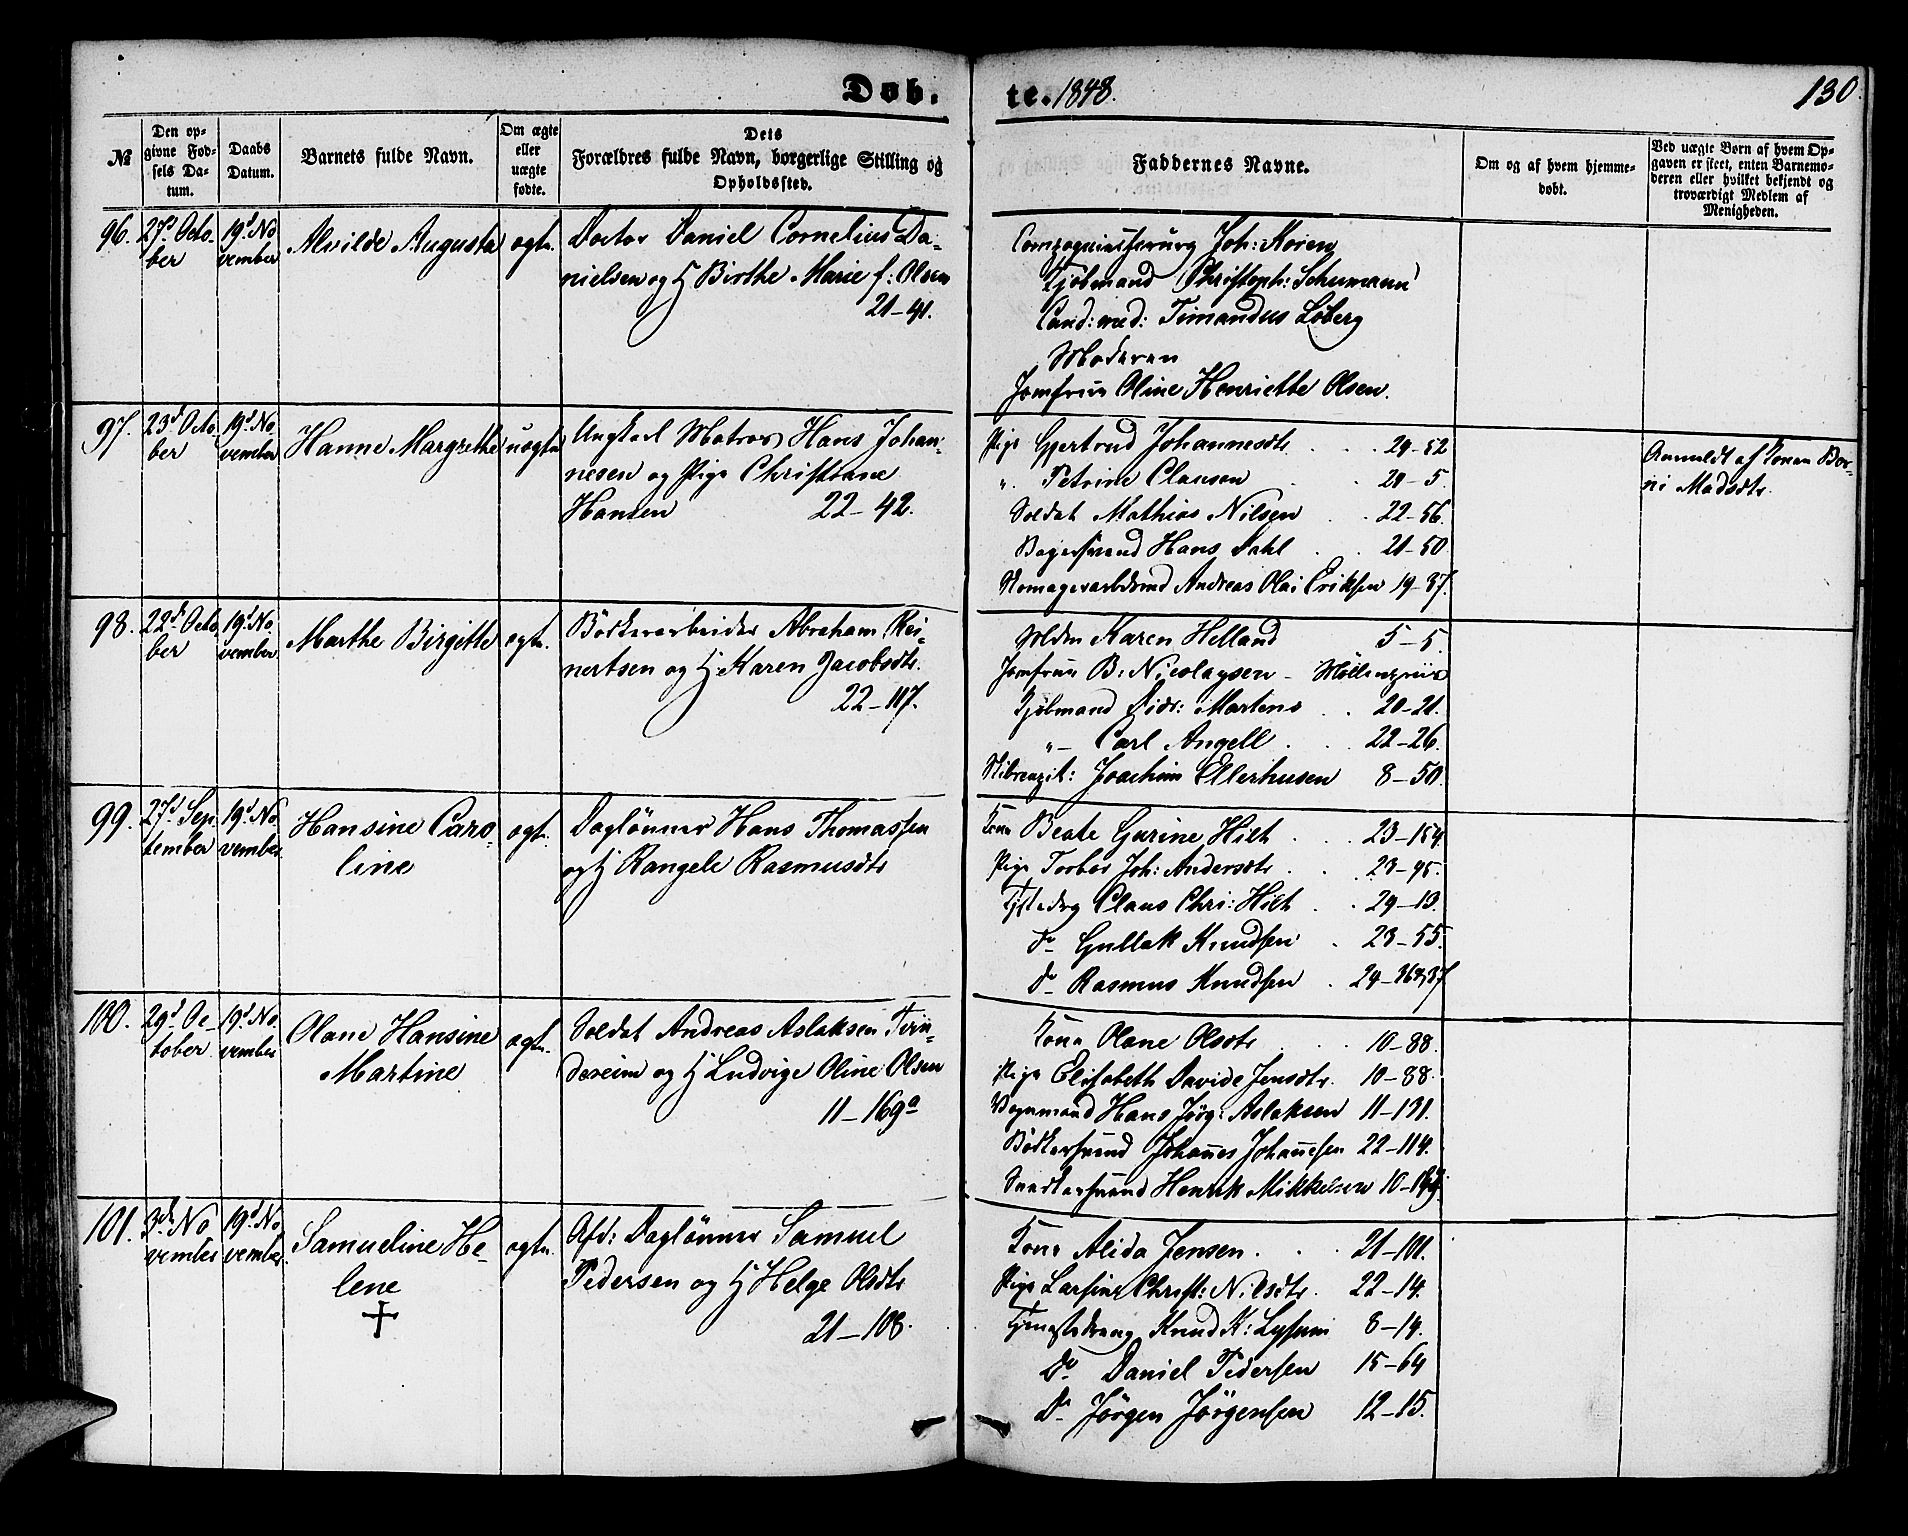 Døb.
te. 1848.
130
№
Den op-
givne Fød-
sels Da-
tum.
Daabs
Datum.
Barnets fulde Navn.
Om ægte
eller
uægte
fødte.
Dets
Forældres fulde Navn, borgerlige Stilling og
Opholdssted.
Faddernes Navne.
Om og af hvem hjemme-
døbt.
Ved uægte Børn af hvem Op-
gaven er skeet, enten Barnemo-
deren eller hvilket bekjendt og
troværdigt Medlem af
Menigheden.
96.
27d Octo
ber
19d No
vember
Alvilde Augusta
ægte.
Doctor Daniel Cornelius Da-
nielsen og H Birthe Marie f: Olsen
21-41.
Joh: Koren
Kjöbmand Christoph: Schumann
Cand: med: Timandus Löberg
Moderen
Jomfrue Oline Henriette Olsen.
97.
23d Octo
ber
19d No
vember
Hanne Margrethe
uægte
Ungkarl Matros Hans Johan-
nesen og Pige Christiane
Hansen 22-42.
Pige Gjertrud Johannesdtr. 29-52
". Petrine Clausen 20-5.
Soldat Mathias Nilsen 22-56.
Bagersvend Hans Dahl 21-50
Andreas Olai Eriksen 19-37.
Anmeldt af Konen Ber-
ni Madsdtr.
98.
22d Octo
ber
19d No
vember
Marthe Birgitte
ægte.
Bödkerarbeider Abraham Rei-
nertsen og H Karen Jacobsdtr.
22-117.
Karen Helland 5-5.
Jomfrue B: Nicolaysen - Möllenpriis
Kjöbmand Didr: Martens 20-21.
"- Carl Angell 22-26.
Joachim Ellerhusen 8-50.
99.
27d Sep
tember
19d No
vember
Hansine Caro-
line
ægte.
Daglönner Hans Thomassen
og H Rangele Rasmusdtr
Kone Beate Gurine Hilt 23-154.
Pige Torbor Joh: Andersdtr. 23-95.
Claus Chri: Hilt 29-13.
Do Gullak Knudsen 23-55.
Do Rasmus Knudsen 24-36&37
100.
29d Oc-
tober
19d No
vember
Olane Hansine
Martine
ægte.
Soldat Andreas Aslaksen Tvin-
dereim og H Ludvige Oline Olsen
11-169a
Kone Olane Olsdtr 10-88.
Pige Elisabeth Davide Jensdtr. 10-88.
Vognmand Hans Jörg: Aslaksen 11-131.
Bödkersvend Johannes Johannesen 22-114.
Snedkersvend Henrik Mikkelsen
101.
3d No
vember
19d No
vember
Samueline He-
lene
ægte.
Afd: Daglönner Samuel
Pedersen og H Helge Olsdtr
21-108.
Kone Alida Jensen. 21-101.
Pige Larsine Christ: Nilsdtr. 22-14.
Tjenestedreng Knud K: 8-14.
Do Daniel Pedersen 15-64
Do Jörgen Jörgensen 12-15.